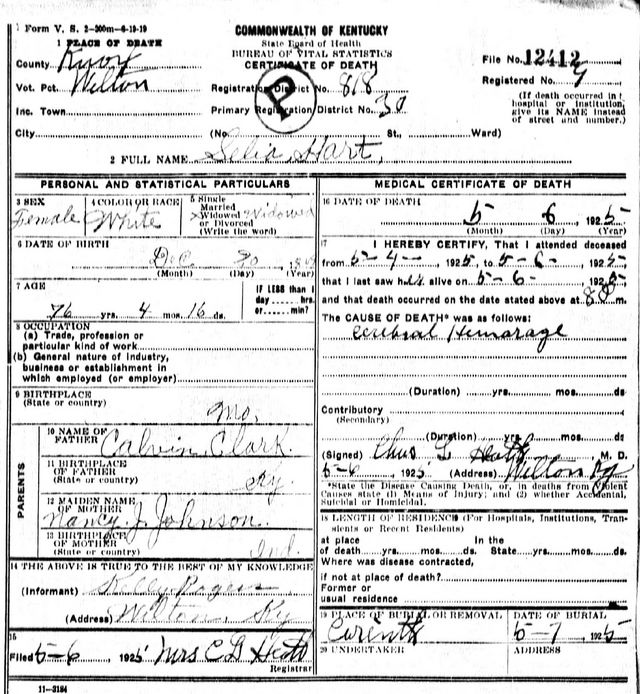 Form V. S. 2-200m-6-19-19
COMMONWEALTH OF KENTUCKY
State Board of Health
BUREAU OF VITAL STATISTICS
CERTIFICATE OF DEATH
1 PLACE OF DEATH
County Knox
Vot. Pct. Wilton
Inc. Town
City
Registration District No. 818
Primary Registration District No. 30
P
File No. 12412
Registered No. 9
(If death occurred in a hospital or institution, give its NAME instead of street and number.)
(No. St., Ward)
2 FULL NAME Selia Hart,
PERSONAL AND STATISTICAL PARTICULARS
3 SEX
Female
4 COLOR OR RACE
White
5 Single
Married
Widowed
or Divorced
(Write the word)
Widowed
6 DATE OF BIRTH
Dec 20
(Month) (Day) (Year)
7 AGE
76 yrs. 4 mos. 16 ds.
IF LESS than 1
day hrs.
or min.?
8 OCCUPATION
(a) Trade, profession or
particular kind of work
(b) General nature of industry,
business or establishment in
which employed (or employer)
9 BIRTHPLACE
(State or country)
Mo.
PARENTS
10 NAME OF
FATHER
Calvin Clark
11 BIRTHPLACE
OF FATHER
(State or country)
Ky
12 MAIDEN NAME
OF MOTHER
Nancy J. Johnson
13 BIRTHPLACE
OF MOTHER
(State or country)
Ind.
14 THE ABOVE IS TRUE TO THE BEST OF MY KNOWLEDGE
(Informant) Kelly Rogers
(Address) Wilton, Ky
15
Filed 5-6, 1925 Mrs C B Heath
Registrar
11-3184
MEDICAL CERTIFICATE OF DEATH
16 DATE OF DEATH
5 6, 1925
(Month) (Day) (Year)
17 I HEREBY CERTIFY, That I attended deceased
from 5-4-, 1925, to 5-6-, 1925,
that I last saw her alive on 5-6-, 1925,
and that death occurred on the date stated above at 8 m.
The CAUSE OF DEATH* was as follows:
Cerebral Hemarage
(Duration) yrs. mos. ds
Contributory
(Secondary)
(Duration) yrs. mos. ds
(Signed) Chas L Heath, M. D.
5-6, 1925 (Address) Wilton Ky
*State the Disease Causing Death, or, in deaths from Violent
Causes state (1) Means of Injury; and (2) whether Accidental,
Suicidal or Homicidal.
18 LENGTH OF RESIDENCE (For Hospitals, Institutions, Tran-
sients or Recent Residents)
at place In the
of death yrs. mos. ds. State yrs. mos. ds.
Where was disease contracted,
if not at place of death?
Former or
usual residence
19 PLACE OF BURIAL OR REMOVAL
Corenth
DATE OF BURIAL
5-7, 1925
20 UNDERTAKER
ADDRESS